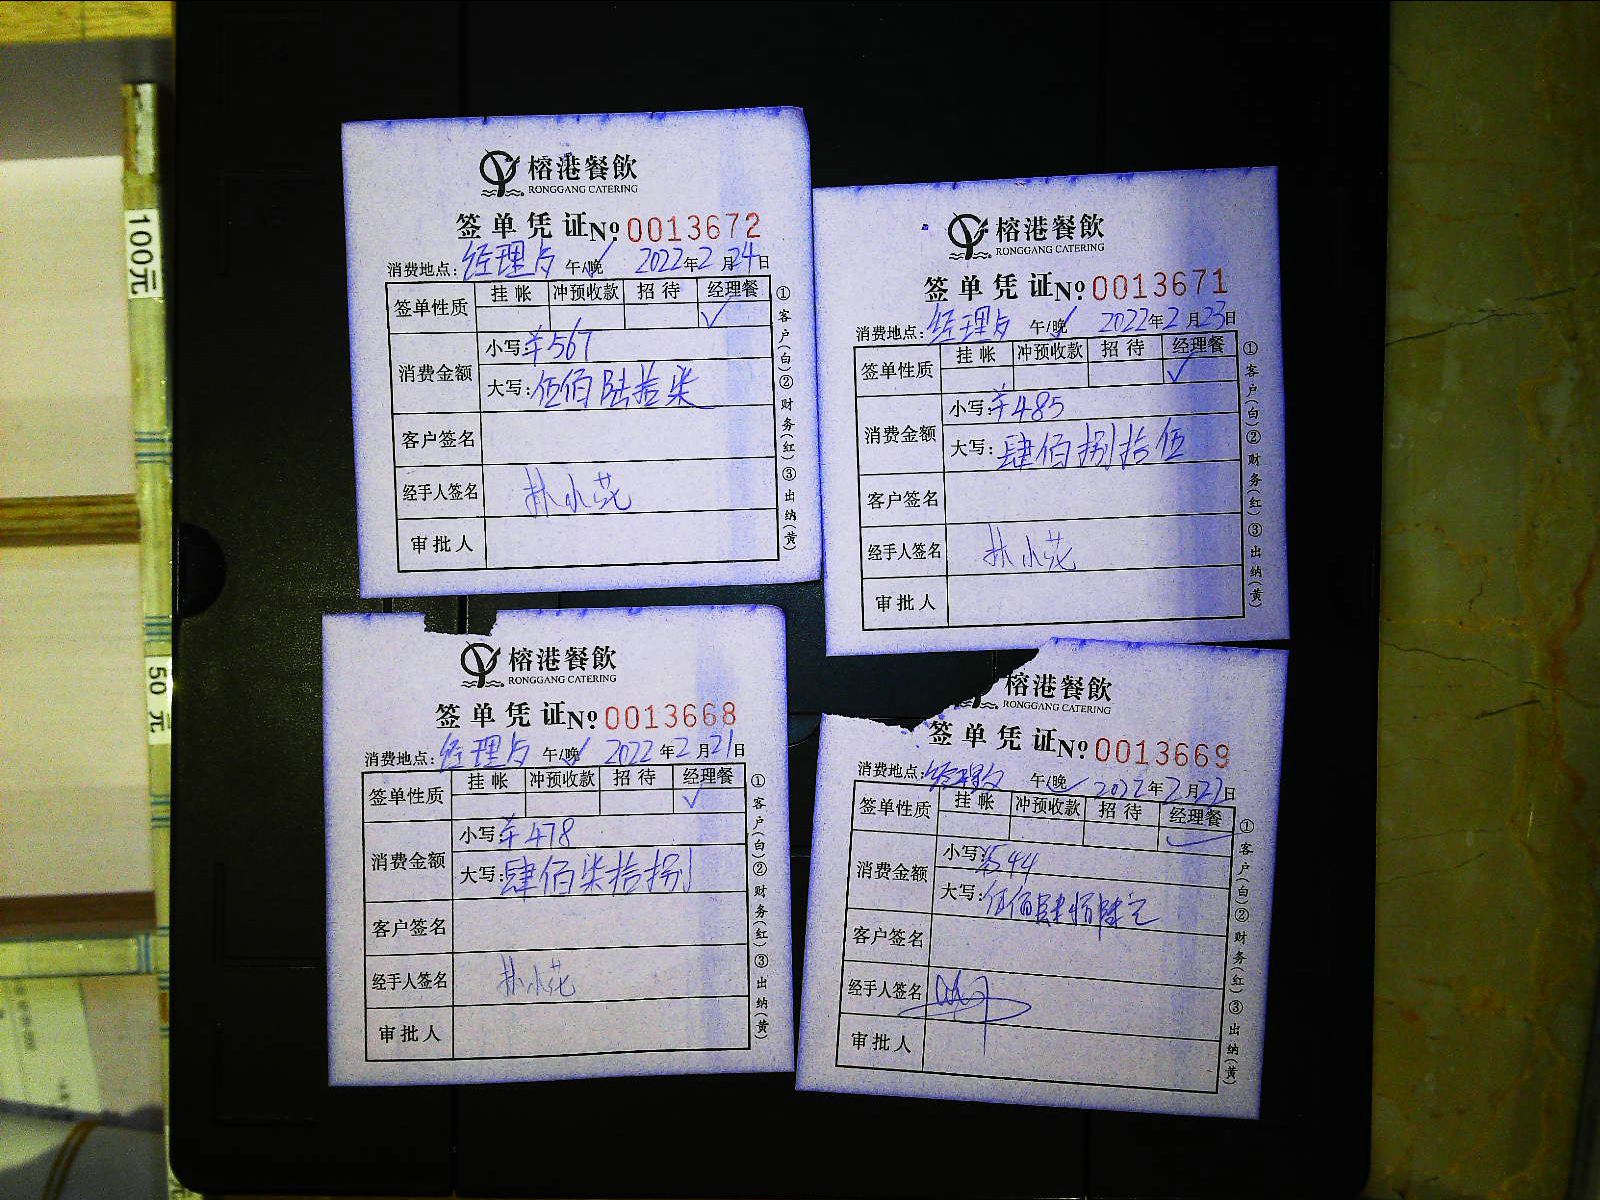 100元
50元
榕港餐飲
RONGGANG CATERING
签单凭证No 0013672
消费地点:经理 午/晚 2022年2月24日
签单性质 挂帐 冲预收款 招待 经理餐
✓
消费金额 小写:¥567
大写:伍佰陆拾柒
客户签名
经手人签名 林小花
审批人
①客户(白)②财务(红)③出纳(黄)
榕港餐飲
RONGGANG CATERING
签单凭证No 0013671
消费地点:经理 午/晚 2022年2月23日
签单性质 挂帐 冲预收款 招待 经理餐
✓
消费金额 小写:¥485
大写:肆佰捌拾伍
客户签名
经手人签名 林小花
审批人
①客户(白)②财务(红)③出纳(黄)
榕港餐飲
RONGGANG CATERING
签单凭证No 0013668
消费地点:经理 午/晚 2022年2月21日
签单性质 挂帐 冲预收款 招待 经理餐
✓
消费金额 小写:¥478
大写:肆佰柒拾捌
客户签名
经手人签名 林小花
审批人
①客户(白)②财务(红)③出纳(黄)
榕港餐飲
RONGGANG CATERING
签单凭证No 0013669
消费地点:经理 午/晚 2022年2月22日
签单性质 挂帐 冲预收款 招待 经理餐
✓
消费金额 小写:¥544
大写:伍佰肆拾肆元
客户签名
经手人签名
审批人
①客户(白)②财务(红)③出纳(黄)